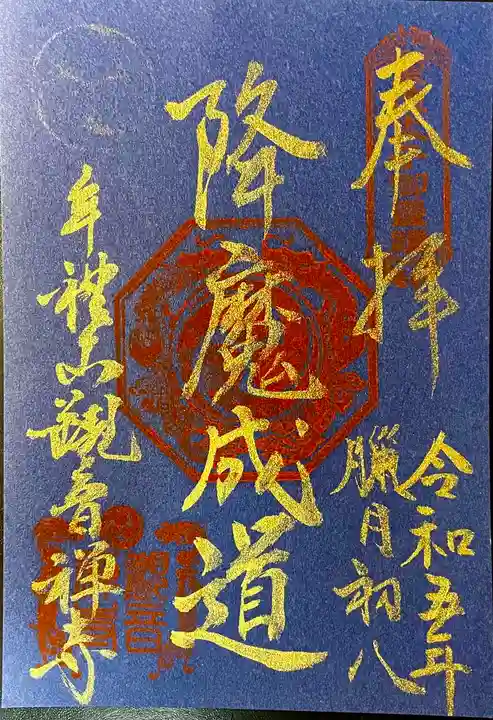 奉拝
令和五年
臘月初八
降魔成道
牟禮山觀音禅寺